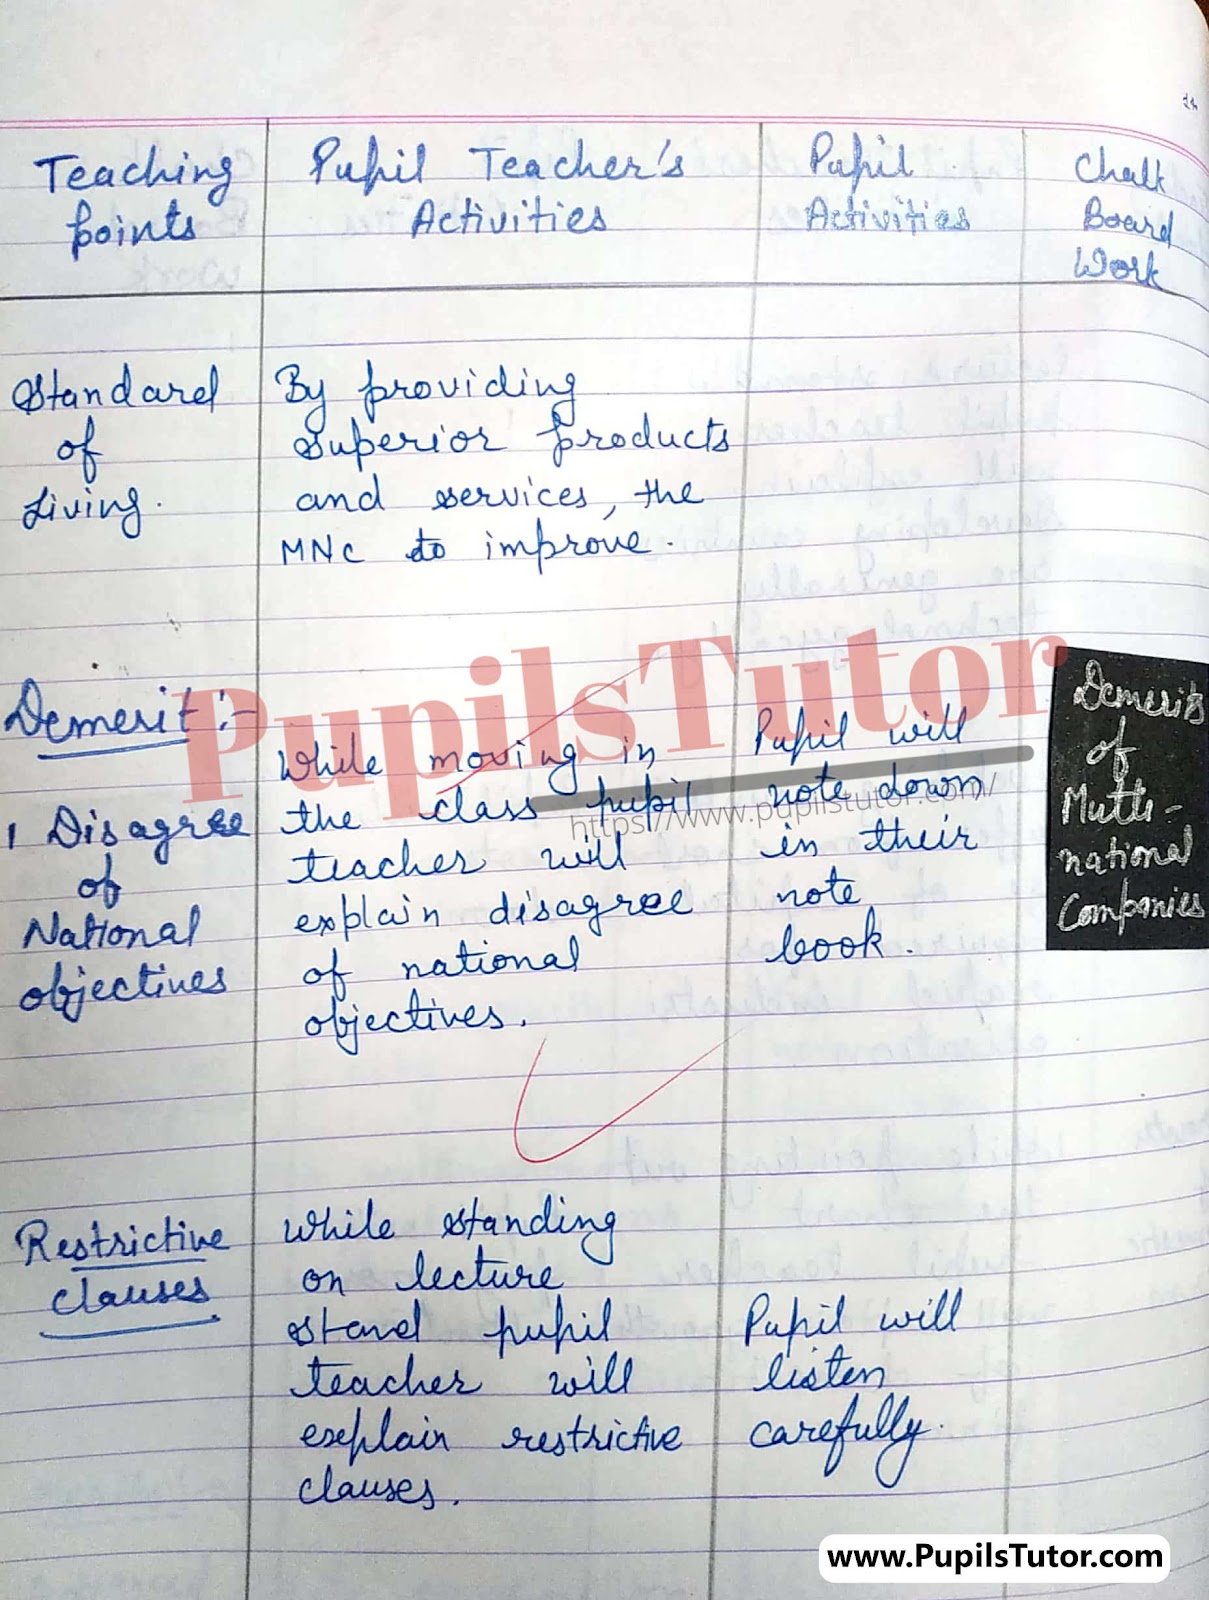 Teaching
points
Pupil Teacher's
Activities
Pupil
Activities
Chalk
Board
Work
Standard
of
Living.
By providing
superior products
and services, the
MNC to improve.
Demerit :-
1 Disagree
of
National
objectives
While moving in
the class pupil
teacher will
explain disagree
of national
objectives.
Pupil will
note down
in their
note
book.
Demerits
of
Multi-
national
Companies
Restrictive
clauses
While standing
on lecture
stand pupil
teacher will
explain restrictive
clauses.
Pupil will
listen
carefully.
PupilsTutor
https://www.pupilstutor.com/
www.PupilsTutor.com